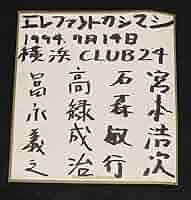 エレファントカシマシ
1994.9月14日
横浜 CLUB24
宮本浩次
石森敏行
高緑成治
冨永義之